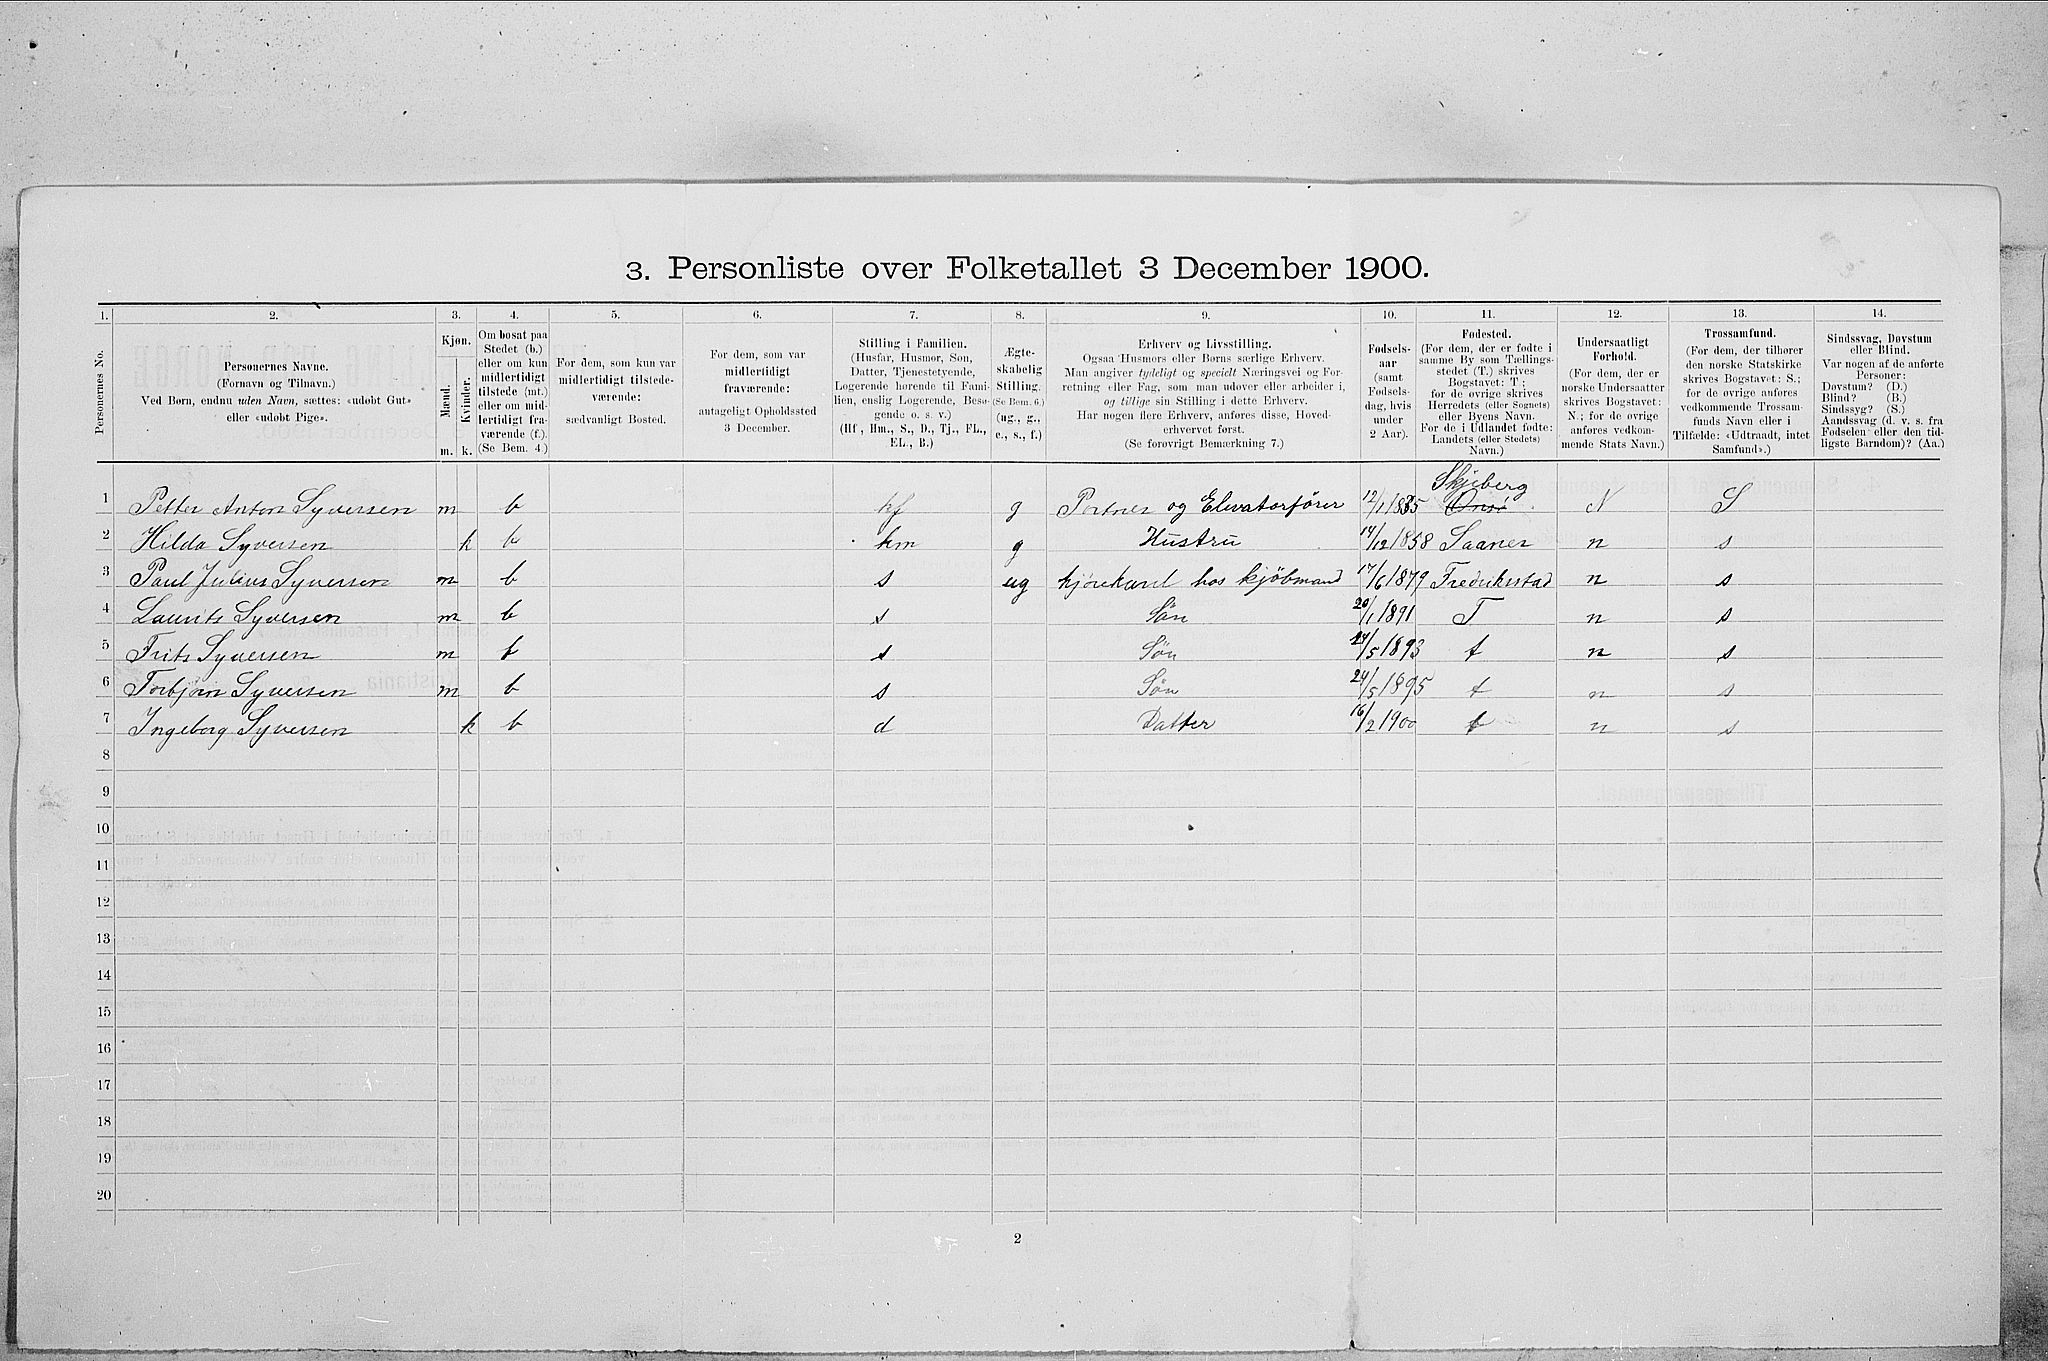 3. Personliste over Folketallet 3 December 1900.
1. 2. 3. 4. 5. 6. 7. 8. 9. 10. 11. 12. 13. 14.
Personernes No.
Personernes Navne.
(Fornavn og Tilnavn.)
Ved Børn, endnu uden Navn, sættes: «udøbt Gut»
eller «udøbt Pige».
Kjøn.
Mænd.
Kvinder.
m. k.
Om bosat paa
Stedet (b.)
eller om kun
midlertidigt
tilstede (mt.)
eller om mid-
lertidigt fra-
værende (f.)
(Se Bem. 4.)
For dem, som kun var
midlertidigt tilstede-
værende:
sædvanligt Bosted.
For dem, som var
midlertidigt
fraværende:
antageligt Opholdssted
3 December.
Stilling i Familien.
(Husfar, Husmor, Søn,
Datter, Tjenestetyende,
Logerende hørende til Fami-
lien, enslig Logerende, Besø-
gende o. s. v.)
(Hf, Hm., S., D., Tj., FL.,
EL., B.)
Ægte-
skabelig
Stilling.
(Se Bem. 6.)
(ug., g.,
e., s., f.)
Erhverv og Livsstilling.
Ogsaa Husmors eller Børns særlige Erhverv.
Man angiver tydeligt og specielt Næringsvei og For-
retning eller Fag, som man udøver eller arbeider i,
og tillige sin Stilling i dette Erhverv.
Har nogen flere Erhverv, anføres disse, Hoved-
erhvervet først.
(Se forøvrigt Bemærkning 7.)
Fødsels-
aar
(samt
Fødsels-
dag, hvis
under
2 Aar).
Fødested.
(For dem, der er fødte i
samme By som Tællings-
stedet (T.) skrives
Bogstavet: T;
for de øvrige skrives
Herredets (eller Sognets)
eller Byens Navn.
For de i Udlandet fødte:
Landets (eller Stedets)
Navn.)
Undersaatligt
Forhold.
(For dem, der er
norske Undersaatter
skrives Bogstavet:
N.; for de øvrige
anføres vedkom-
mende Stats Navn.)
Trossamfund.
(For dem, der tilhører
den norske Statskirke
skrives Bogstavet: S.;
for de øvrige anføres
vedkommende Trossam-
funds Navn eller i
Tilfælde: «Udtraadt, intet
Samfund».)
Sindssvag, Døvstum
eller Blind.
Var nogen af de anførte
Personer:
Døvstum? (D.)
Blind? (B.)
Sindssyg? (S.)
Aandssvag (d. v. s. fra
Fødselen eller den tid-
ligste Barndom)? (Aa.)
Skjeberg
1 Petter Anton Syversen m b hf g Portner og Elevatorfører 12/1 1855 Onsø N S
2 Hilda Syversen k b hm g Hustru 14/12 1858 Saaner n s
3 Paul Julius Syversen m b s ug kjørekarel hos kjøbmand 17/6 1879 Fredrikstad n s
4 Laurits Syversen m b s Søn 20/1 1891 T n s
5 Frits Syversen m b s Søn 24/5 1893 t n s
6 Torbjørn Syversen m b s Søn 24/5 1895 t n s
7 Ingeborg Syversen k b d Datter 16/2 1900 t n s
8
9
10
11
12
13
14
15
16
17
18
19
20
2